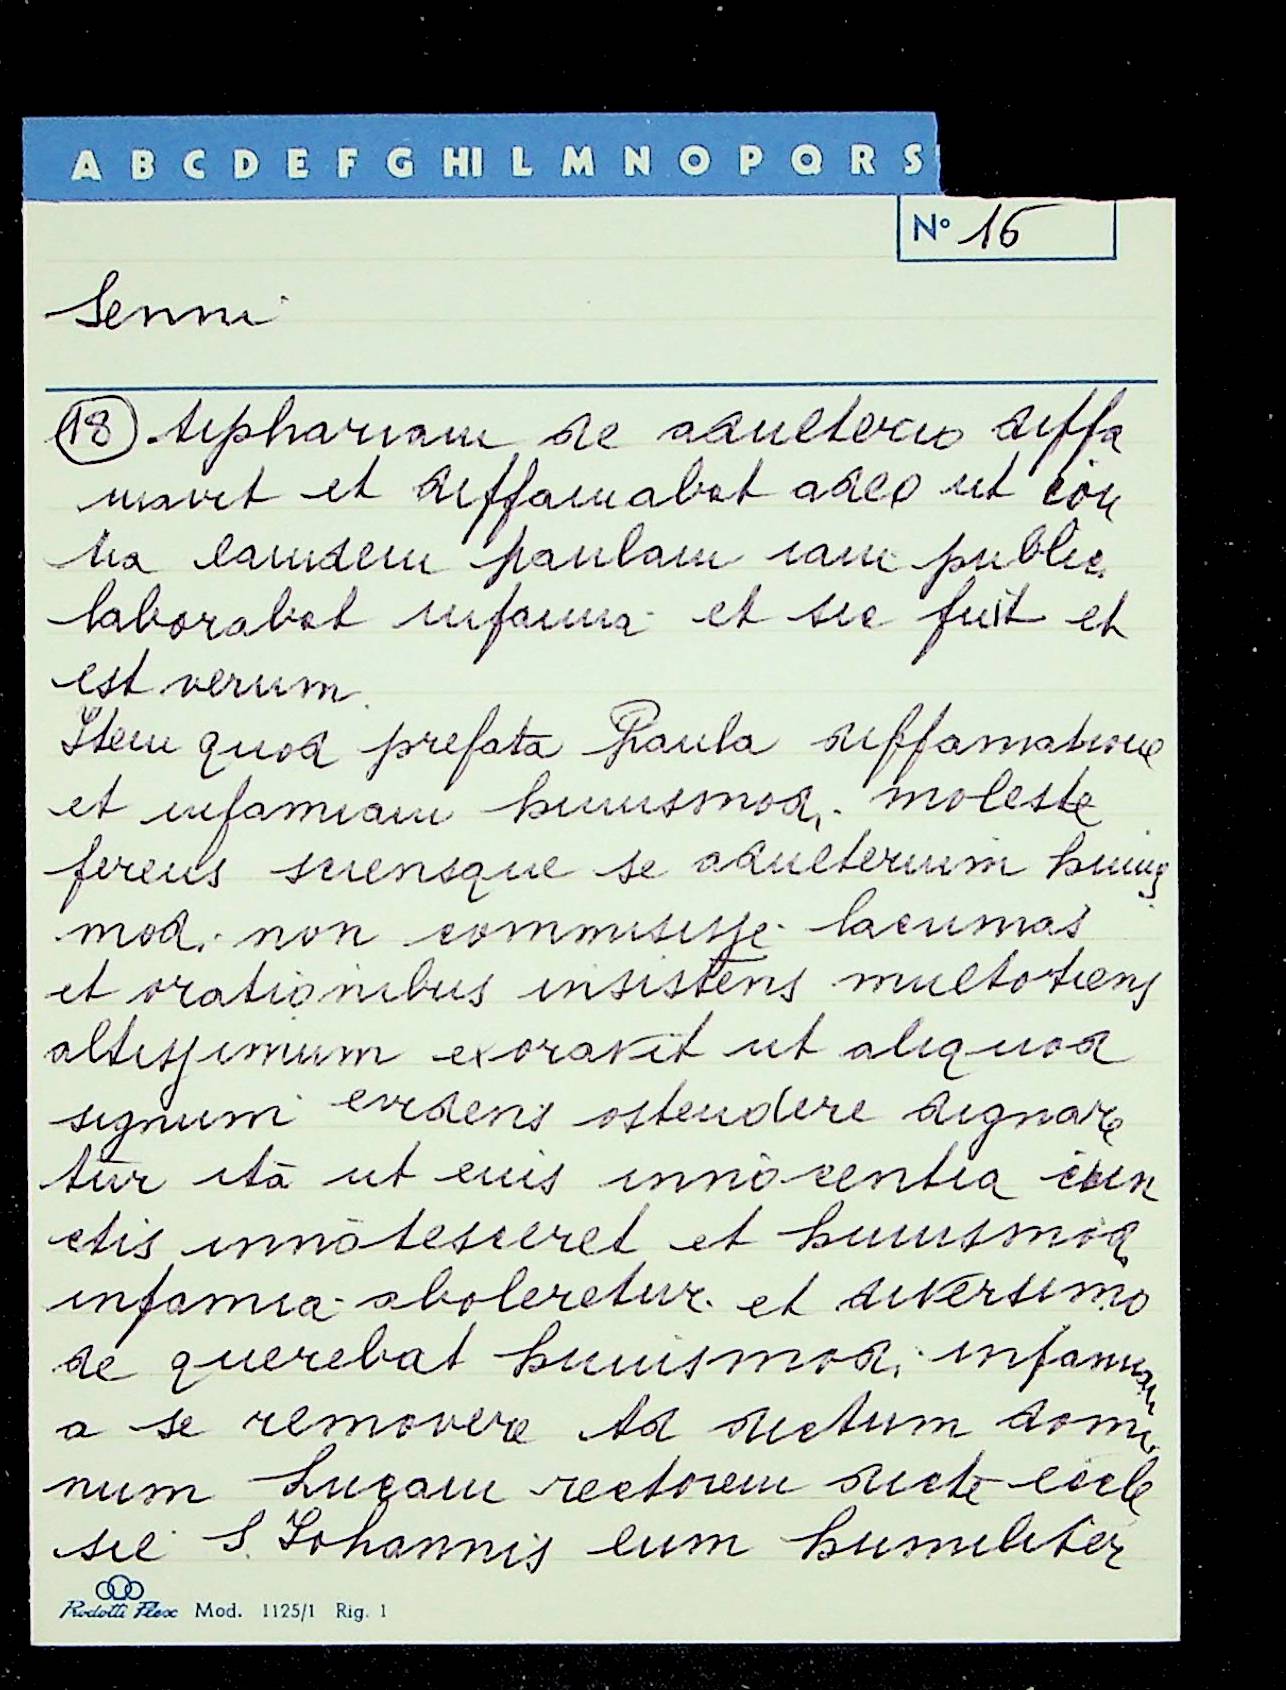 A B C D E F G HI L M N O P Q R S
N° 16
Senni
(18). tiphariam de adulterio diffa
mavit et diffamabat adeo ut con
tra eamdem paulam iam publica
laborabat infamia et sic fuit et
est verum.
Item quod prefata Paula diffamatione
et infamiam huiusmodi moleste
ferens sciensque se adulterium huius
modi non commisisse lacrimas
et orationibus insistens multotiens
altissimum exoravit ut aliquod
signum evidens ostendere dignare
tur ita ut euis innocentia cun
ctis innotesceret et huiusmodi
infamia aboleretur et diversimo
de querebat huiusmodi infamiam
a se removere Ad dictum domi
num Lucam rectorem dicte eccle
sie S. Johannis eum humiliter
Rudotti Flex Mod. 1125/1 Rig. 1